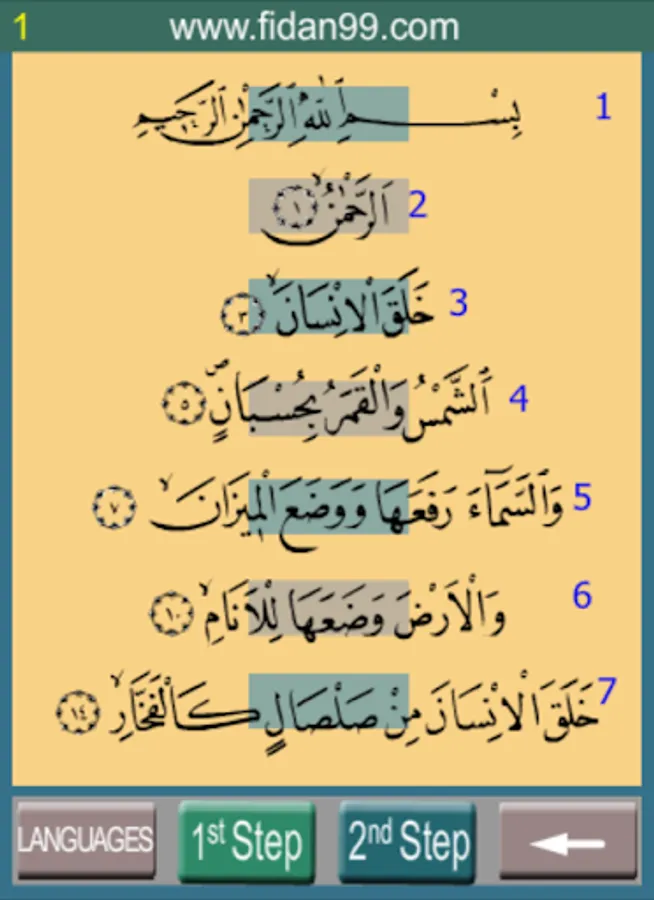 1 www.fidan99.com
بِسْمِ اللّٰهِ الرَّحْمٰنِ الرَّحِيمِ 1
اَلرَّحْمٰنُ ۙ ﴿١﴾ 2
خَلَقَ الْاِنْسَانَ ۙ ﴿٣﴾ 3
اَلشَّمْسُ وَالْقَمَرُ بِحُسْبَانٍ ۖ ﴿٥﴾ 4
وَالسَّمَآءَ رَفَعَهَا وَوَضَعَ الْمِيزَانَ ۙ ﴿٧﴾ 5
وَالْاَرْضَ وَضَعَهَا لِلْاَنَامِ ۙ ﴿١٠﴾ 6
خَلَقَ الْاِنْسَانَ مِنْ صَلْصَالٍ كَالْفَخَّارِ ۙ ﴿١٤﴾ 7
LANGUAGES 1st Step 2nd Step